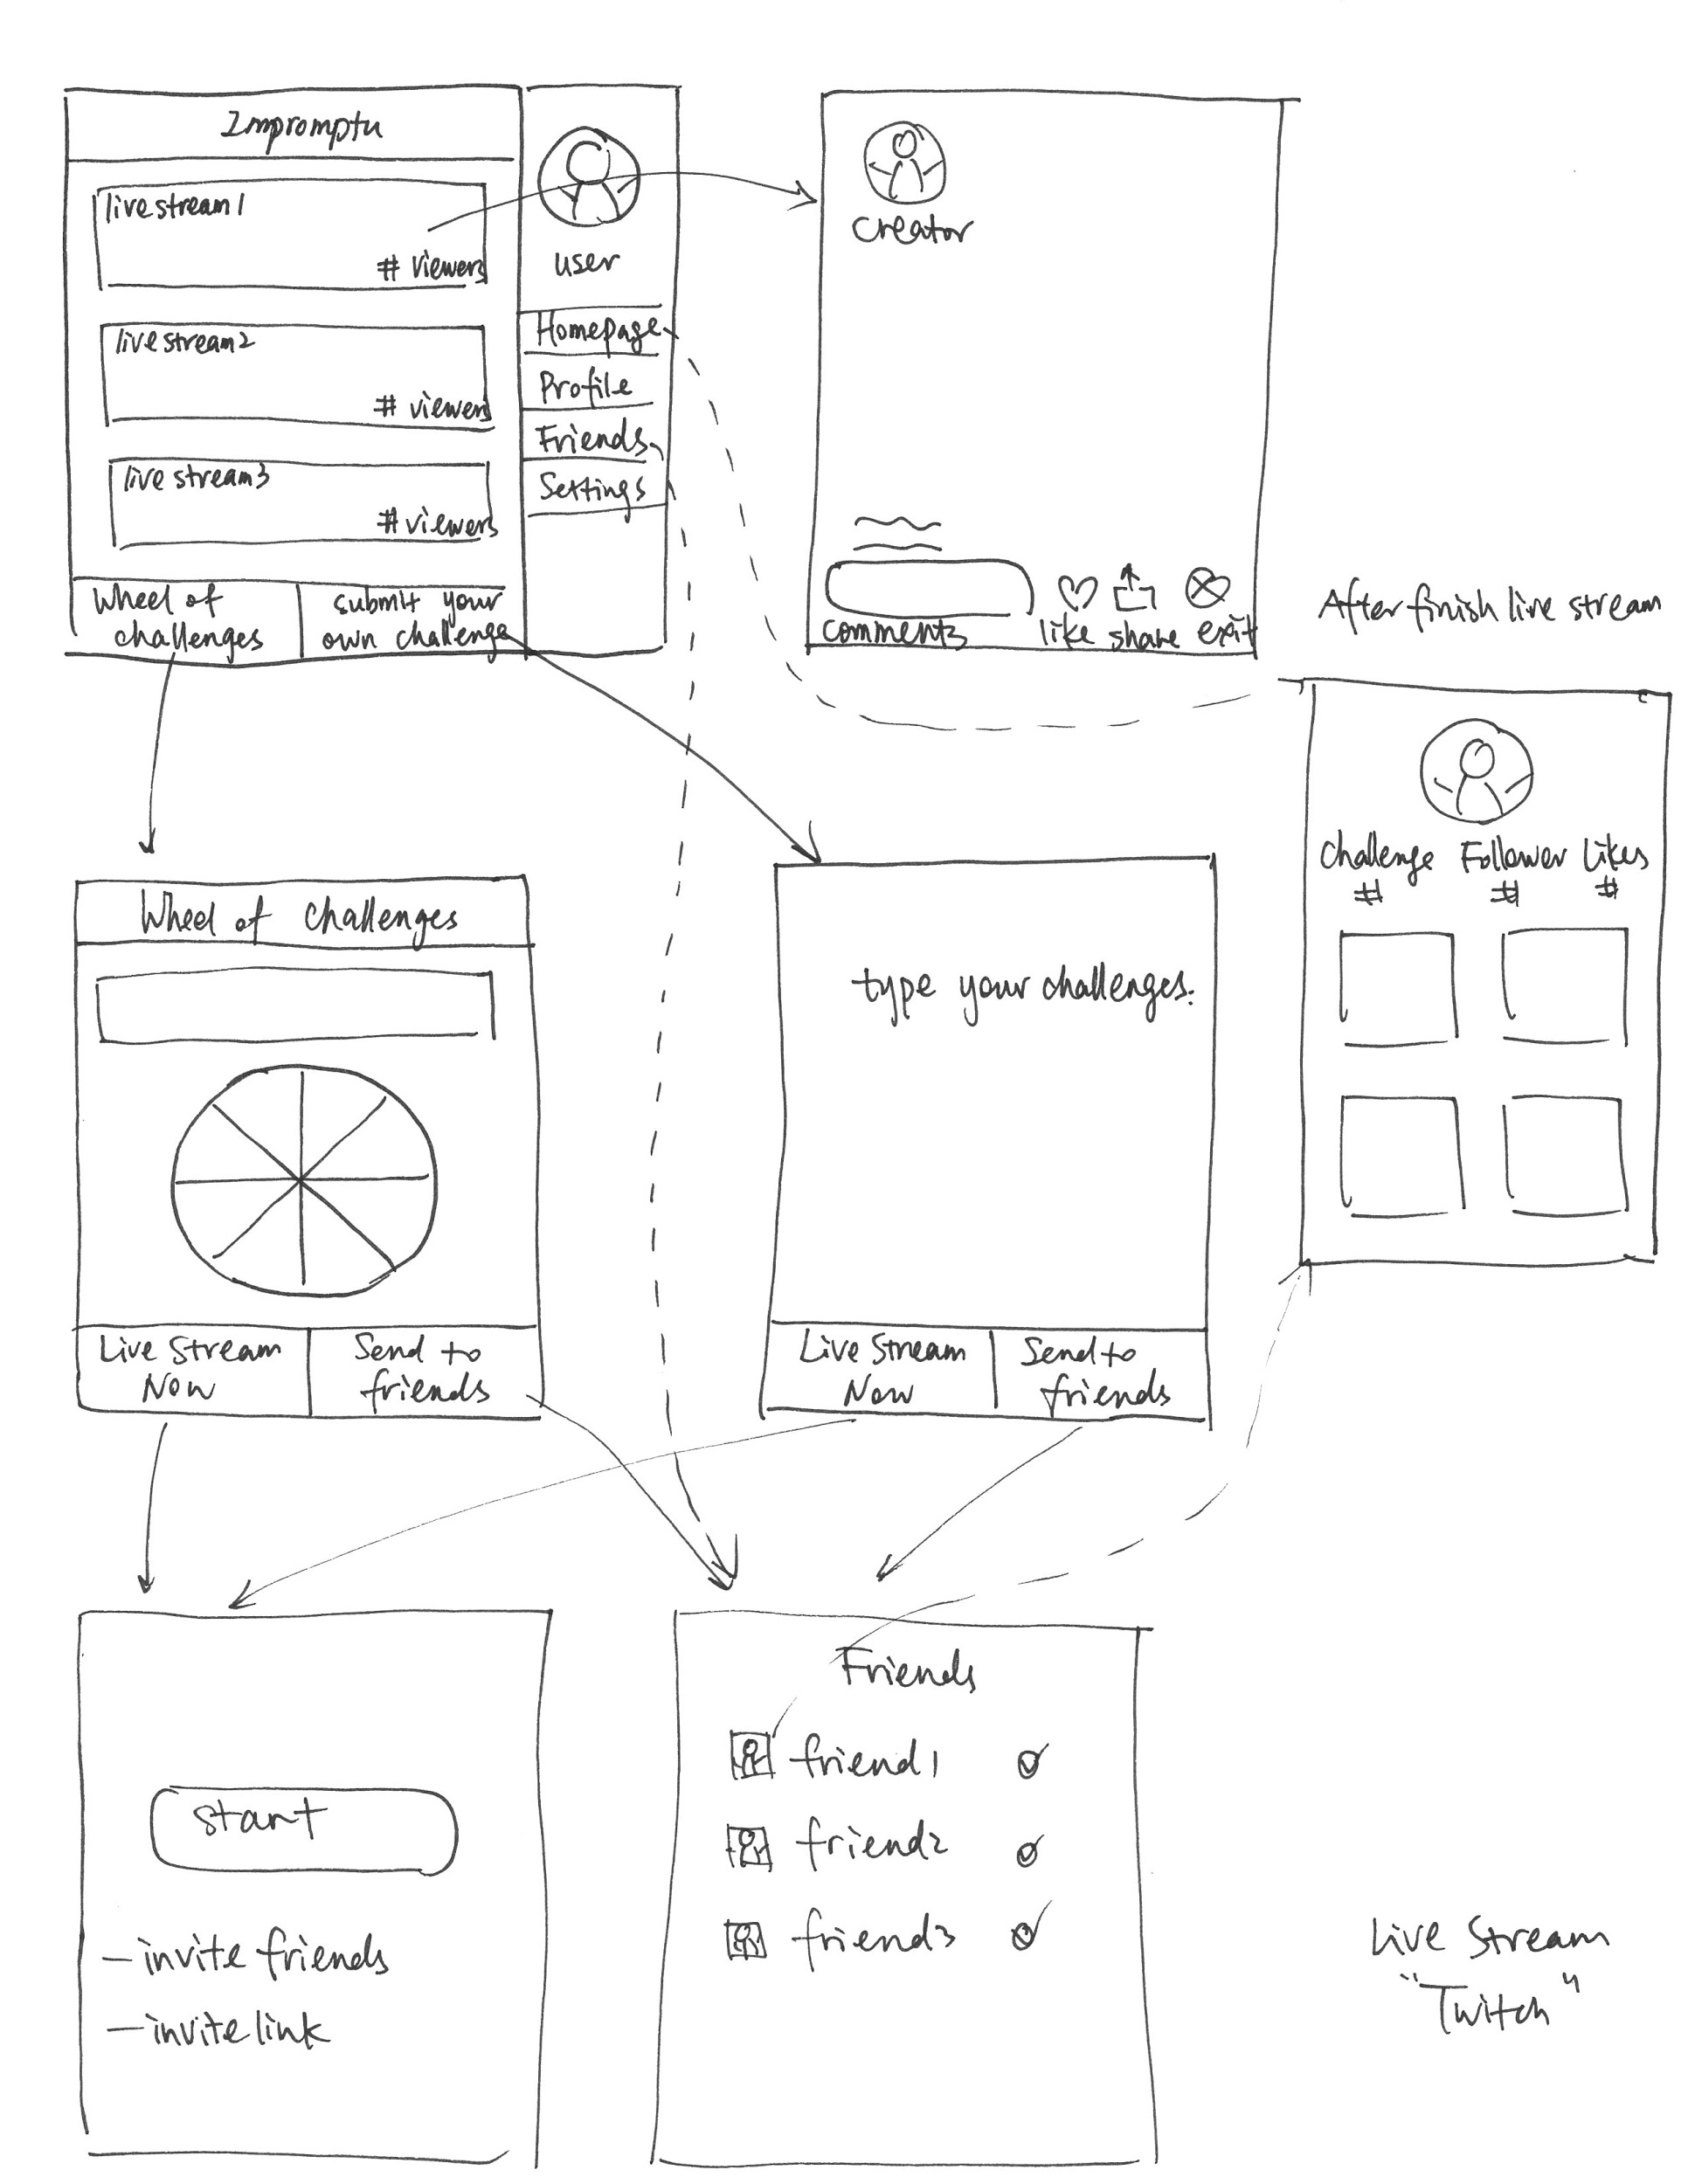 Impromptu
livestream1
# viewers
live stream2
# viewers
live stream3
# viewers
Wheel of
challenges
submit your
own challenge
user
Homepage
Profile
Friends
Settings
creator
comments
like share exit
After finish live stream
Challenge Follower Likes
# # #
Wheel of challenges
Live Stream
Now
Send to
friends
type your challenges:
Live Stream
Now
Send to
friends
start
- invite friends
- invite link
Friends
friend1
friend2
friend3
Live Stream
"Twitch"